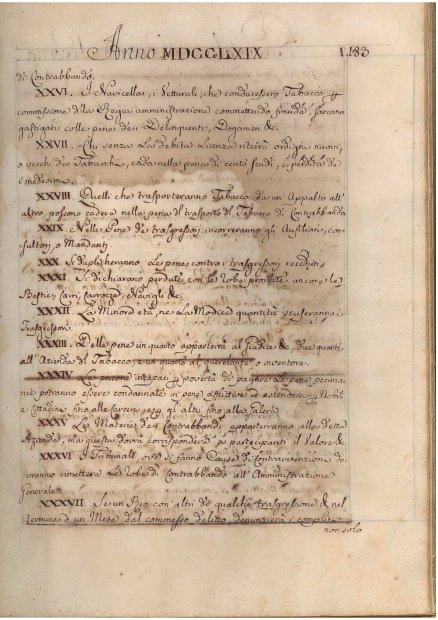 Anno MDCCLXIX 1183
di Contrabbando.
XXVI. I Navicellai, i Vetturali, che conducessero Tabacco p
commissione della Regia amministrazione commettendo fraudi, saranno
gastigati colle pene dei Delinquenti, Doganieri &c.
XXVII. Chi senza la debita Licenza riterrà ordigni nuovi,
o vecchi da Tabacchi, cada nella pena di cento scudi, e perdita de
i medesimi.
XXVIII Quelli che trasporteranno Tabacco da un' Appalto all'
altro possino cadere nella pena di trasporto di Tabacco di Contrabbando
XXIX. Nelle Pene de trasgressori incorreranno gli Ausiliari, con-
sultori, o Mandanti.
XXX Si duplicheranno Le pene contro i trasgressori recidivi
XXXI. Si dichiarano perdute con le Robe proibite ancora le
Bestie, Carri, Carrozze, Navigli &c.
XXXII. La Minore età, ne La Modica quantità scuseranno i
Trasgressori
XXXIII. Delle pene un quarto apparterrà al Giudice &c, due quarti
all' Azienda del Tabacco, e un quarto al querelante, o inventore.
XXXIV Le persone incapaci p povertà di pagare Le pene pecunia-
rie potranno essere condannate in pene afflittive ad estendersi p i Nobili
e Cittadini fino alle Carceri, e p gli altri fino alla Galera
XXXV Le Materie de Contrabbandi apparterranno alla detta
Azienda, ma questa dovrà corrispondere a partecipanti il Valore &c
XXXVI I Tribunali ove si fanno Cause di Contravvenzione do-
vranno rimettere Le Robe di Contrabbando all' Amministrazione
Generale.
XXXVII. Se un Reo con altri di qualche trasgressione &c nel
termine d'un Mese dal commesso delitto, denunzierà i complici
non solo